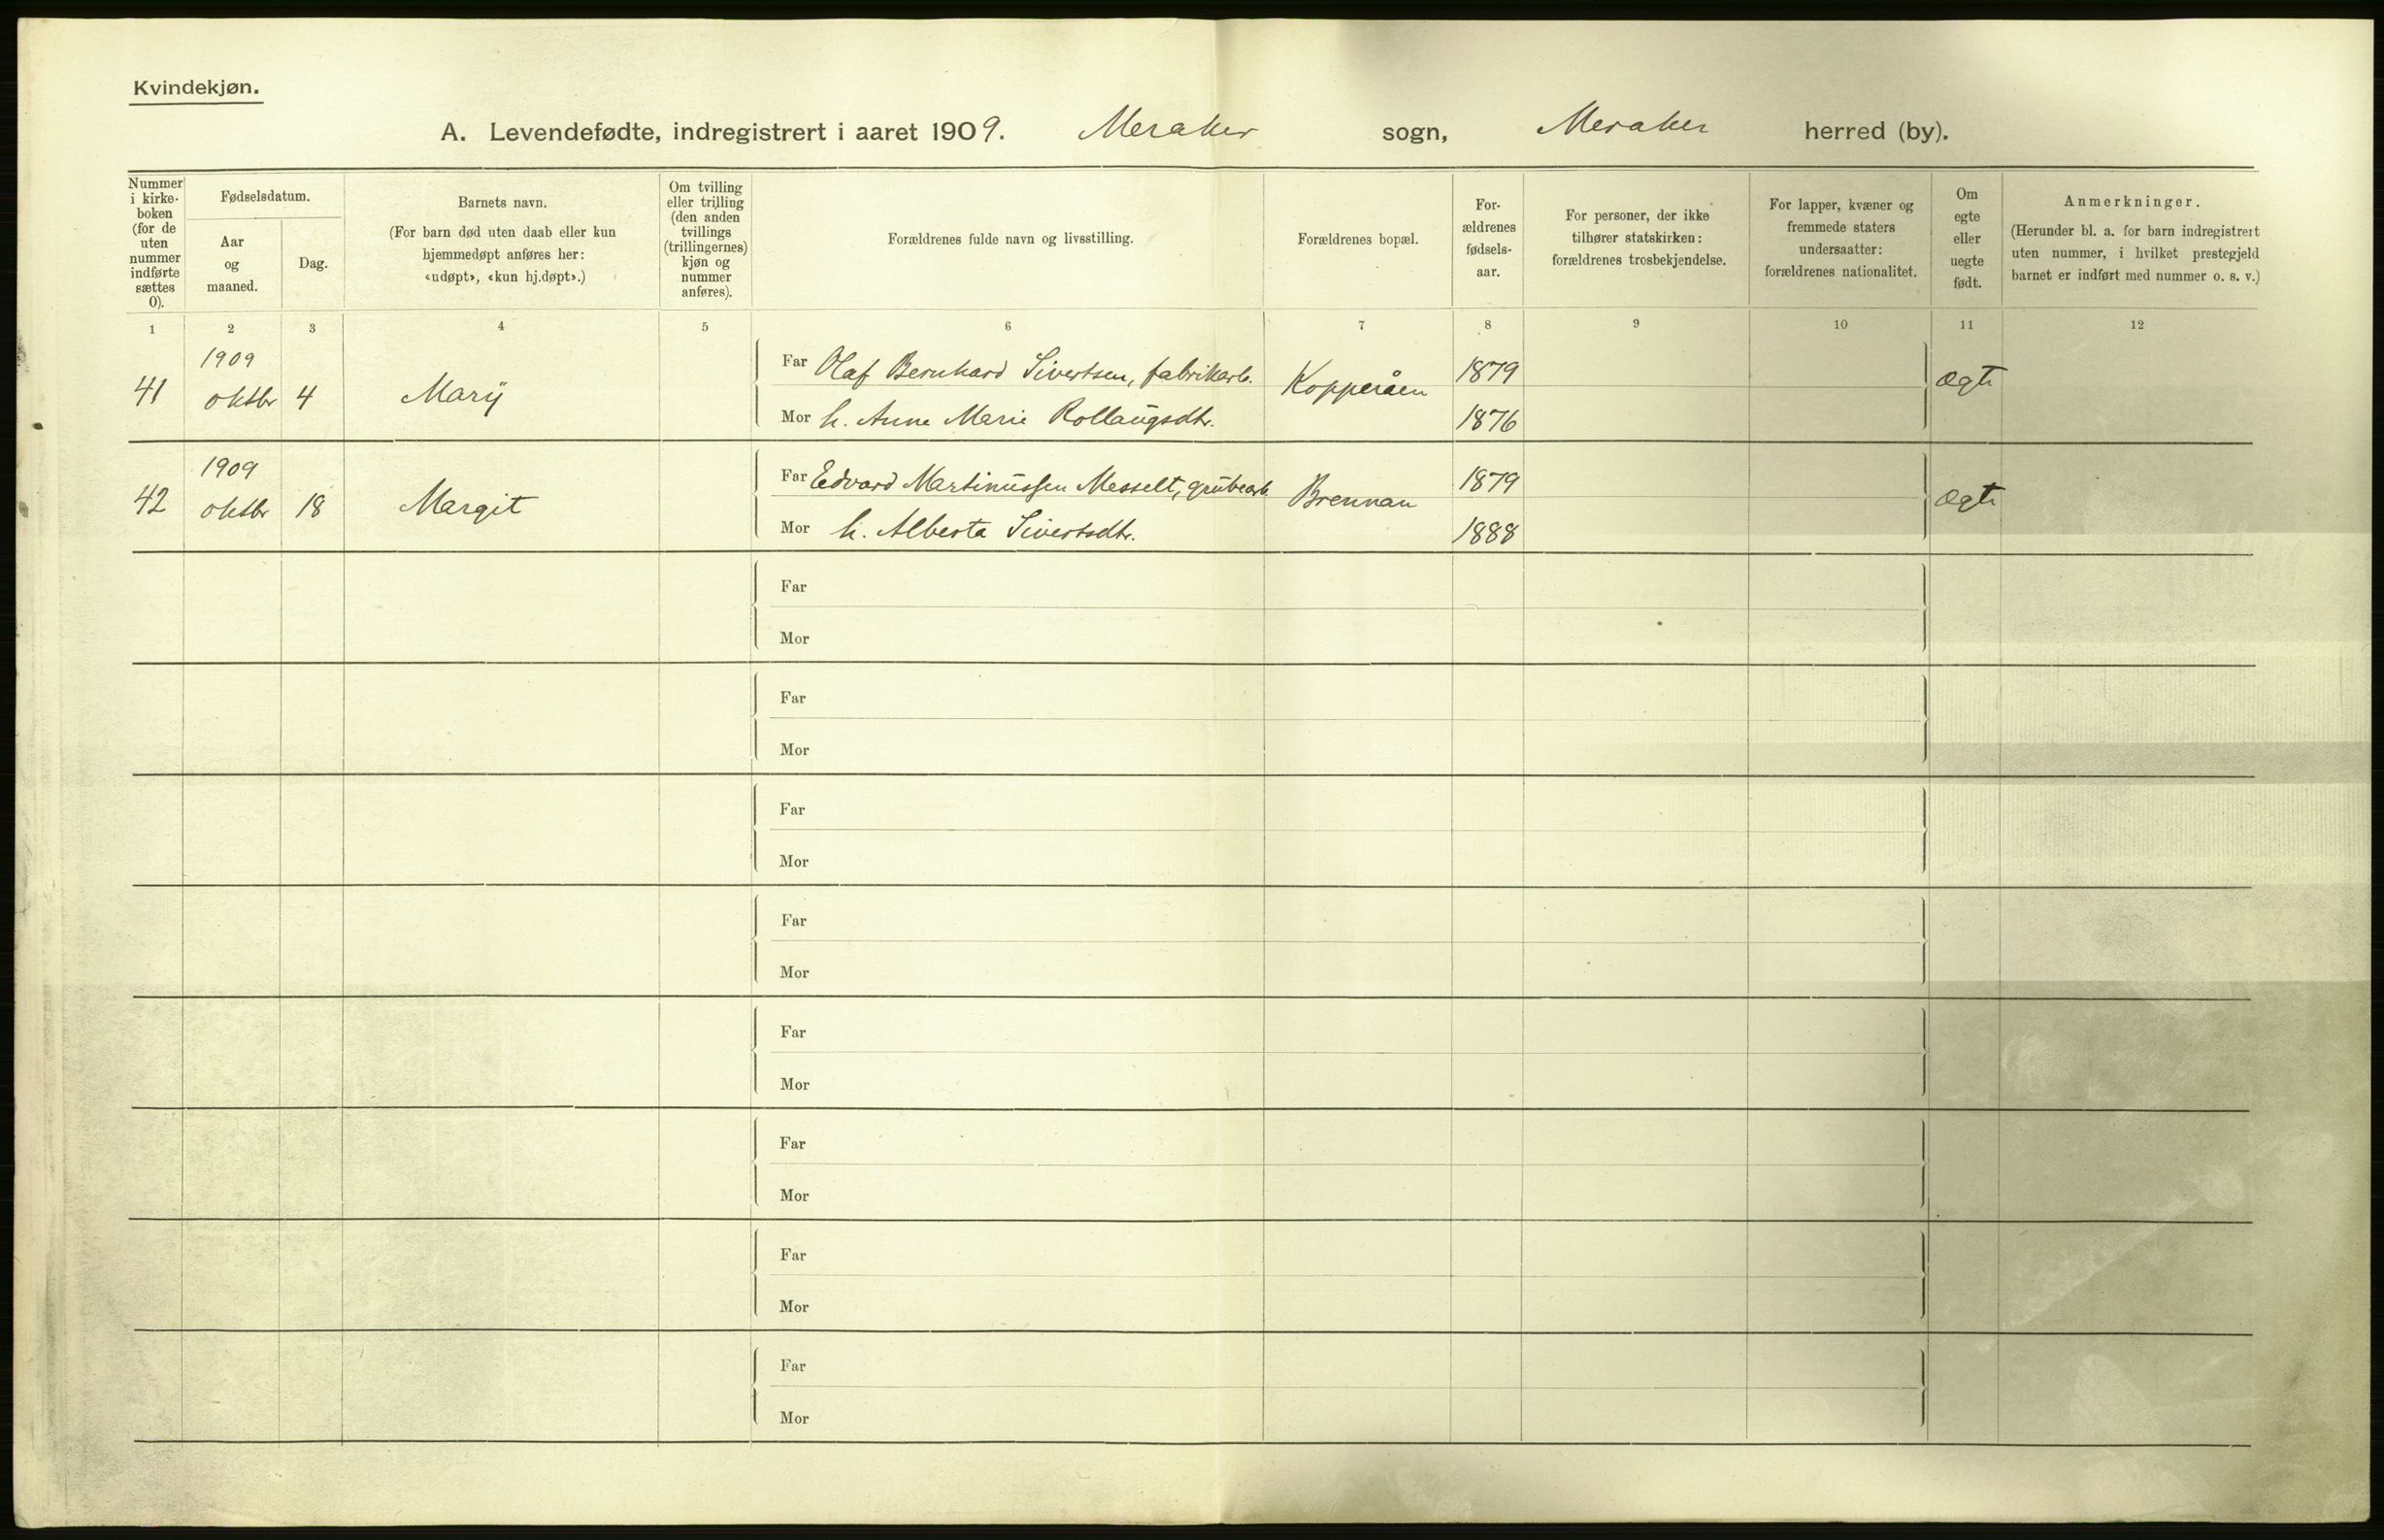 Kvindekjøn.
A. Levendefødte, indregistrert i aaret 1909. Meraker sogn, Meraker herred (by).
Nummer i kirke-boken (for de uten nummer indførte sættes 0).
Fødselsdatum.
Aar og maaned.
Dag.
Barnets navn.
(For barn død uten daab eller kun hjemmedøpt anføres her: «udøpt», «kun hj.døpt».)
Om tvilling eller trilling (den anden tvillings (trillingernes) kjøn og nummer anføres).
Forældrenes fulde navn og livsstilling.
Forældrenes bopæl.
For-ældrenes fødsels-aar.
For personer, der ikke tilhører statskirken: forældrenes trosbekjendelse.
For lapper, kvæner og fremmede staters undersaatter: forældrenes nationalitet.
Om egte eller uegte født.
Anmerkninger.
(Herunder bl. a. for barn indregistrert uten nummer, i hvilket prestegjeld barnet er indført med nummer o. s. v.)
1 2 3 4 5 6 7 8 9 10 11 12
1909
Far Olaf Bernhard Sivertsen, fabrikarb. 1879
41 oktbr 4 Mary Kopperåen ægte
Mor h. Anne Marie Rollaugsdtr. 1876
1909
Far Edvard Martinussen Messelt, grubearb. 1879
42 oktbr 18 Margit Brennan ægte
Mor h. Alberta Sivertsdtr. 1888
Far
Mor
Far
Mor
Far
Mor
Far
Mor
Far
Mor
Far
Mor
Far
Mor
Far
Mor